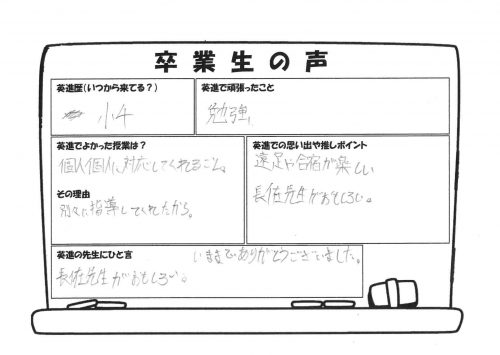 卒業生の声
英進歴(いつから来てる?)
小4
英進で頑張ったこと
勉強
英進でよかった授業は?
個人個人に対応してくれるところ。
その理由
別々に指導してくれたから。
英進での思い出や推しポイント
遠足や合宿が楽しい
長佐先生がおもしろい。
英進の先生にひと言
いままでありがとうございました。
長佐先生がおもしろい。